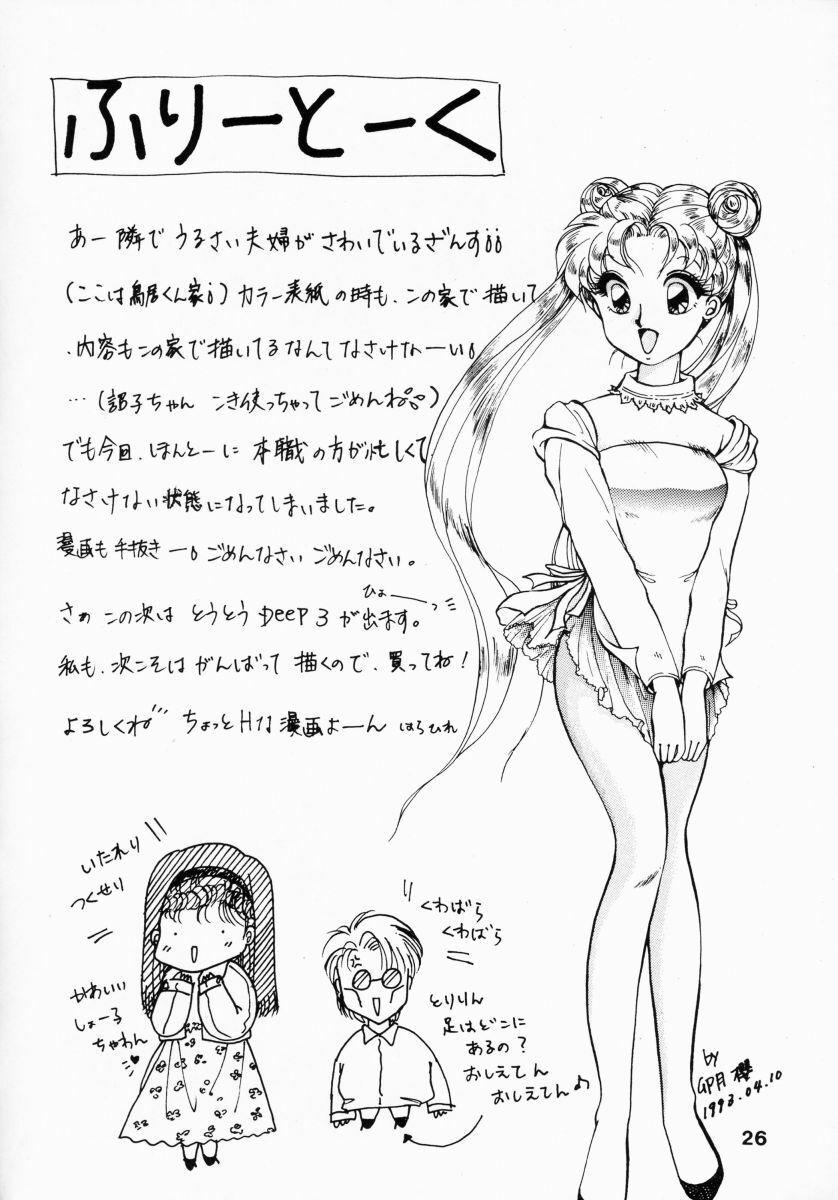 ふりーとーく
あー隣でうるさい夫婦がさわいでいるざんす¡¡
(ここは鳥居くん家¡) カラー表紙の時も、この家で描いて
、内容もこの家で描いてるなんてなさけなーい。
…(詔子ちゃん こき使っちゃってごめんね)
でも今回、ほんとーに本職の方が忙しくて
なさけない状態になってしまいました。
漫画も手抜きー。ごめんなさいごめんなさい。
ひょーっ
さぁ この次は とうとう DEEP 3 が出ます。
私も、次こそはがんばって描くので、買ってね!
よろしくね ちょっとHな漫画よーん はらひれ
いたれり
つくせり
かあいい
しょー子
ちゃわん
くわばら
くわばら
とりりん
足はどこに
あるの?
おしえてん
おしえてん♪
by
卯月 櫻
1993.04.10
26